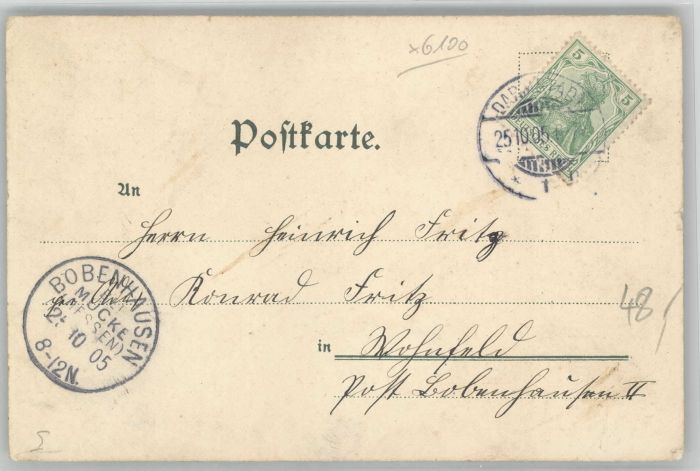 x6100
5 5
DARMSTADT
25.10.05
* 1
Postkarte.
An
Herrn Heinrich Fritz
Konrad Fritz
in Wohnfeld
Post Bobenhausen II
BOBENHAUSEN
MÜCKE
(HESSEN)
25 10 05
8-12N.
48